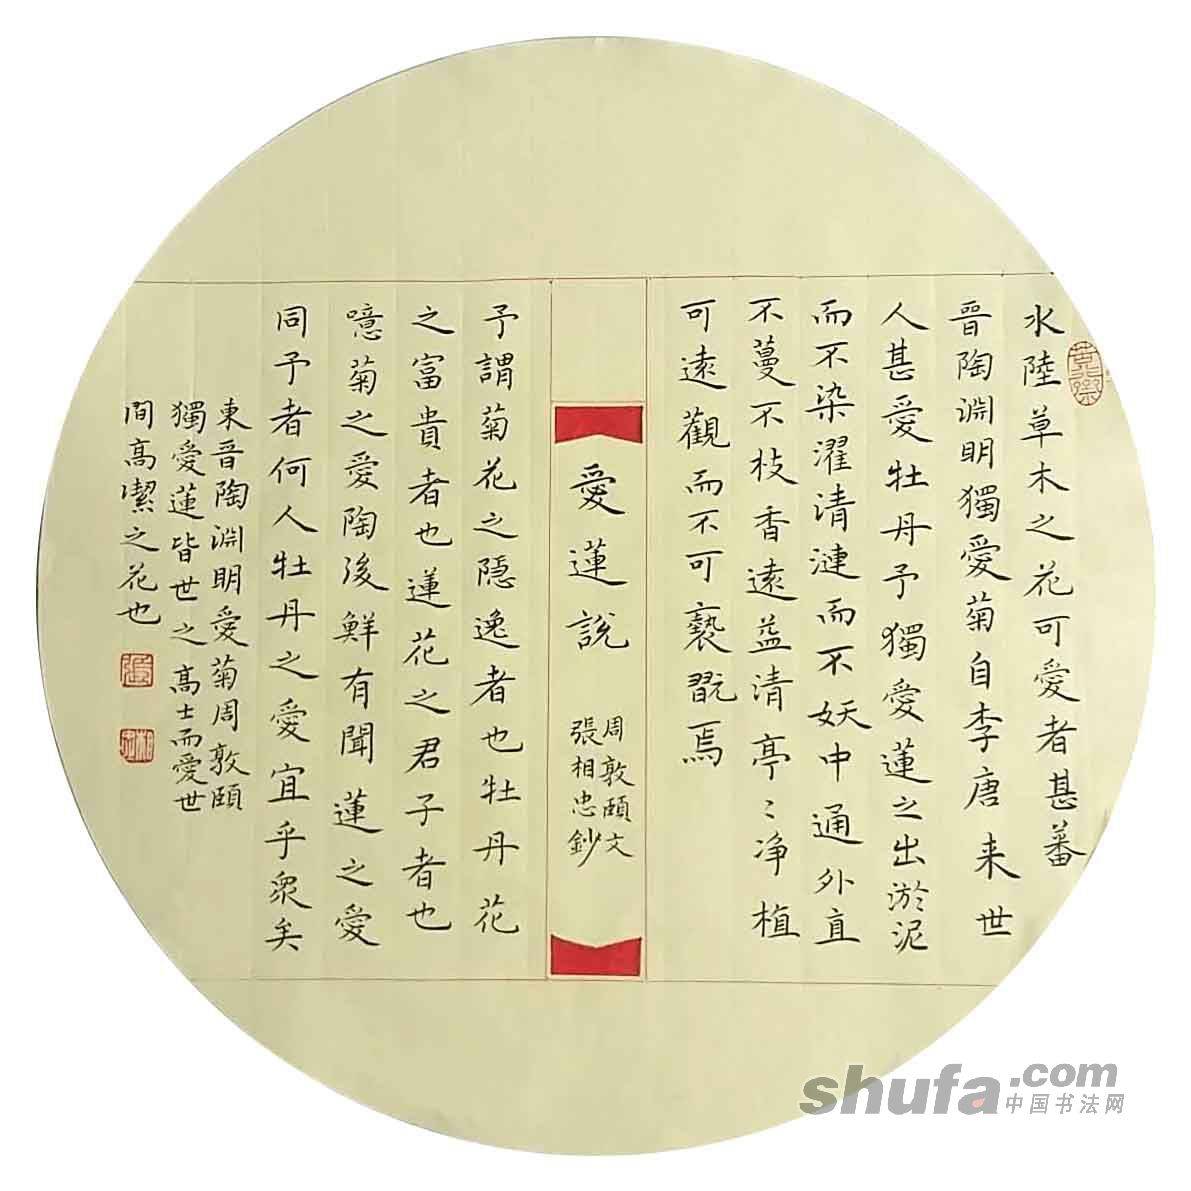 水陸草木之花可愛者甚蕃
晉陶淵明獨愛菊自李唐来世
人甚愛牡丹予獨愛蓮之出淤泥
而不染濯清漣而不妖中通外直
不蔓不枝香遠益清亭〻净植
可遠觀而不可褻翫焉
愛蓮說
周敦頤文
張相忠鈔
予謂菊花之隠逸者也牡丹花
之富貴者也蓮花之君子者也
噫菊之愛陶後鮮有聞蓮之愛
同予者何人牡丹之愛宜乎眾矣
東晉陶淵明愛菊周敦頤
獨愛蓮皆世之髙士而愛世
間髙潔之花也
張
shufa.com
中国书法网